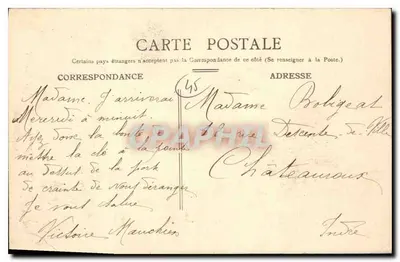 CARTE POSTALE
Certains pays étrangers n'acceptent pas la Correspondance de ce côté (Se renseigner à la Poste.)
CORRESPONDANCE
ADRESSE
45
Madame J'arriverai
Mercredi à minuit.
donc la
mettre la clé à la
au dessus de la porte
de crainte de vous déranger
Je vous salue
Victoire Mauchien
Madame
Descente de Ville
Châteauroux
Indre